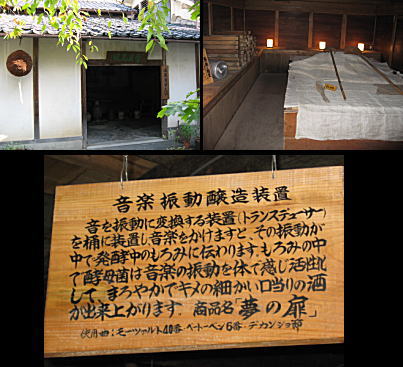 音楽振動醸造装置
音を振動に変換する装置(トランスデューサー)
を桶に装置し音楽をかけますと、その振動が
中で発酵中のもろみに伝わります。もろみの中
で酵母菌は音楽の振動を体で感じ活性化
して、まろやかでキメの細かい口当りの酒
が出来上がります。商品名「夢の扉」
使用曲:モーツァルト40番・ベートーベン6番・デカンショ節